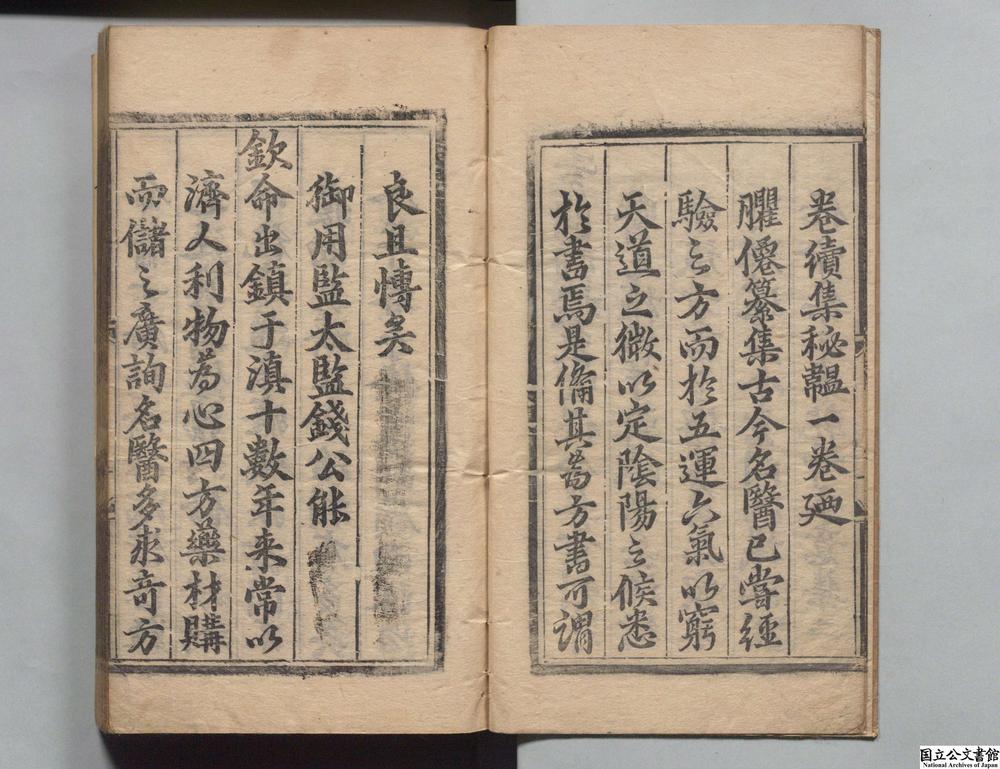 卷續集秘韞一卷廼
臞僊纂集古今名醫已嘗經
驗之方而於五運六氣以窮
天道之微以定陰陽之候悉
於書焉是俻其為方書可謂
良且慱矣
御用監太監錢公能
欽命出鎮于滇十數年来常以
濟人利物為心四方藥材購
而儲之廣詢名醫多求竒方
国立公文書館
National Archives of Japan